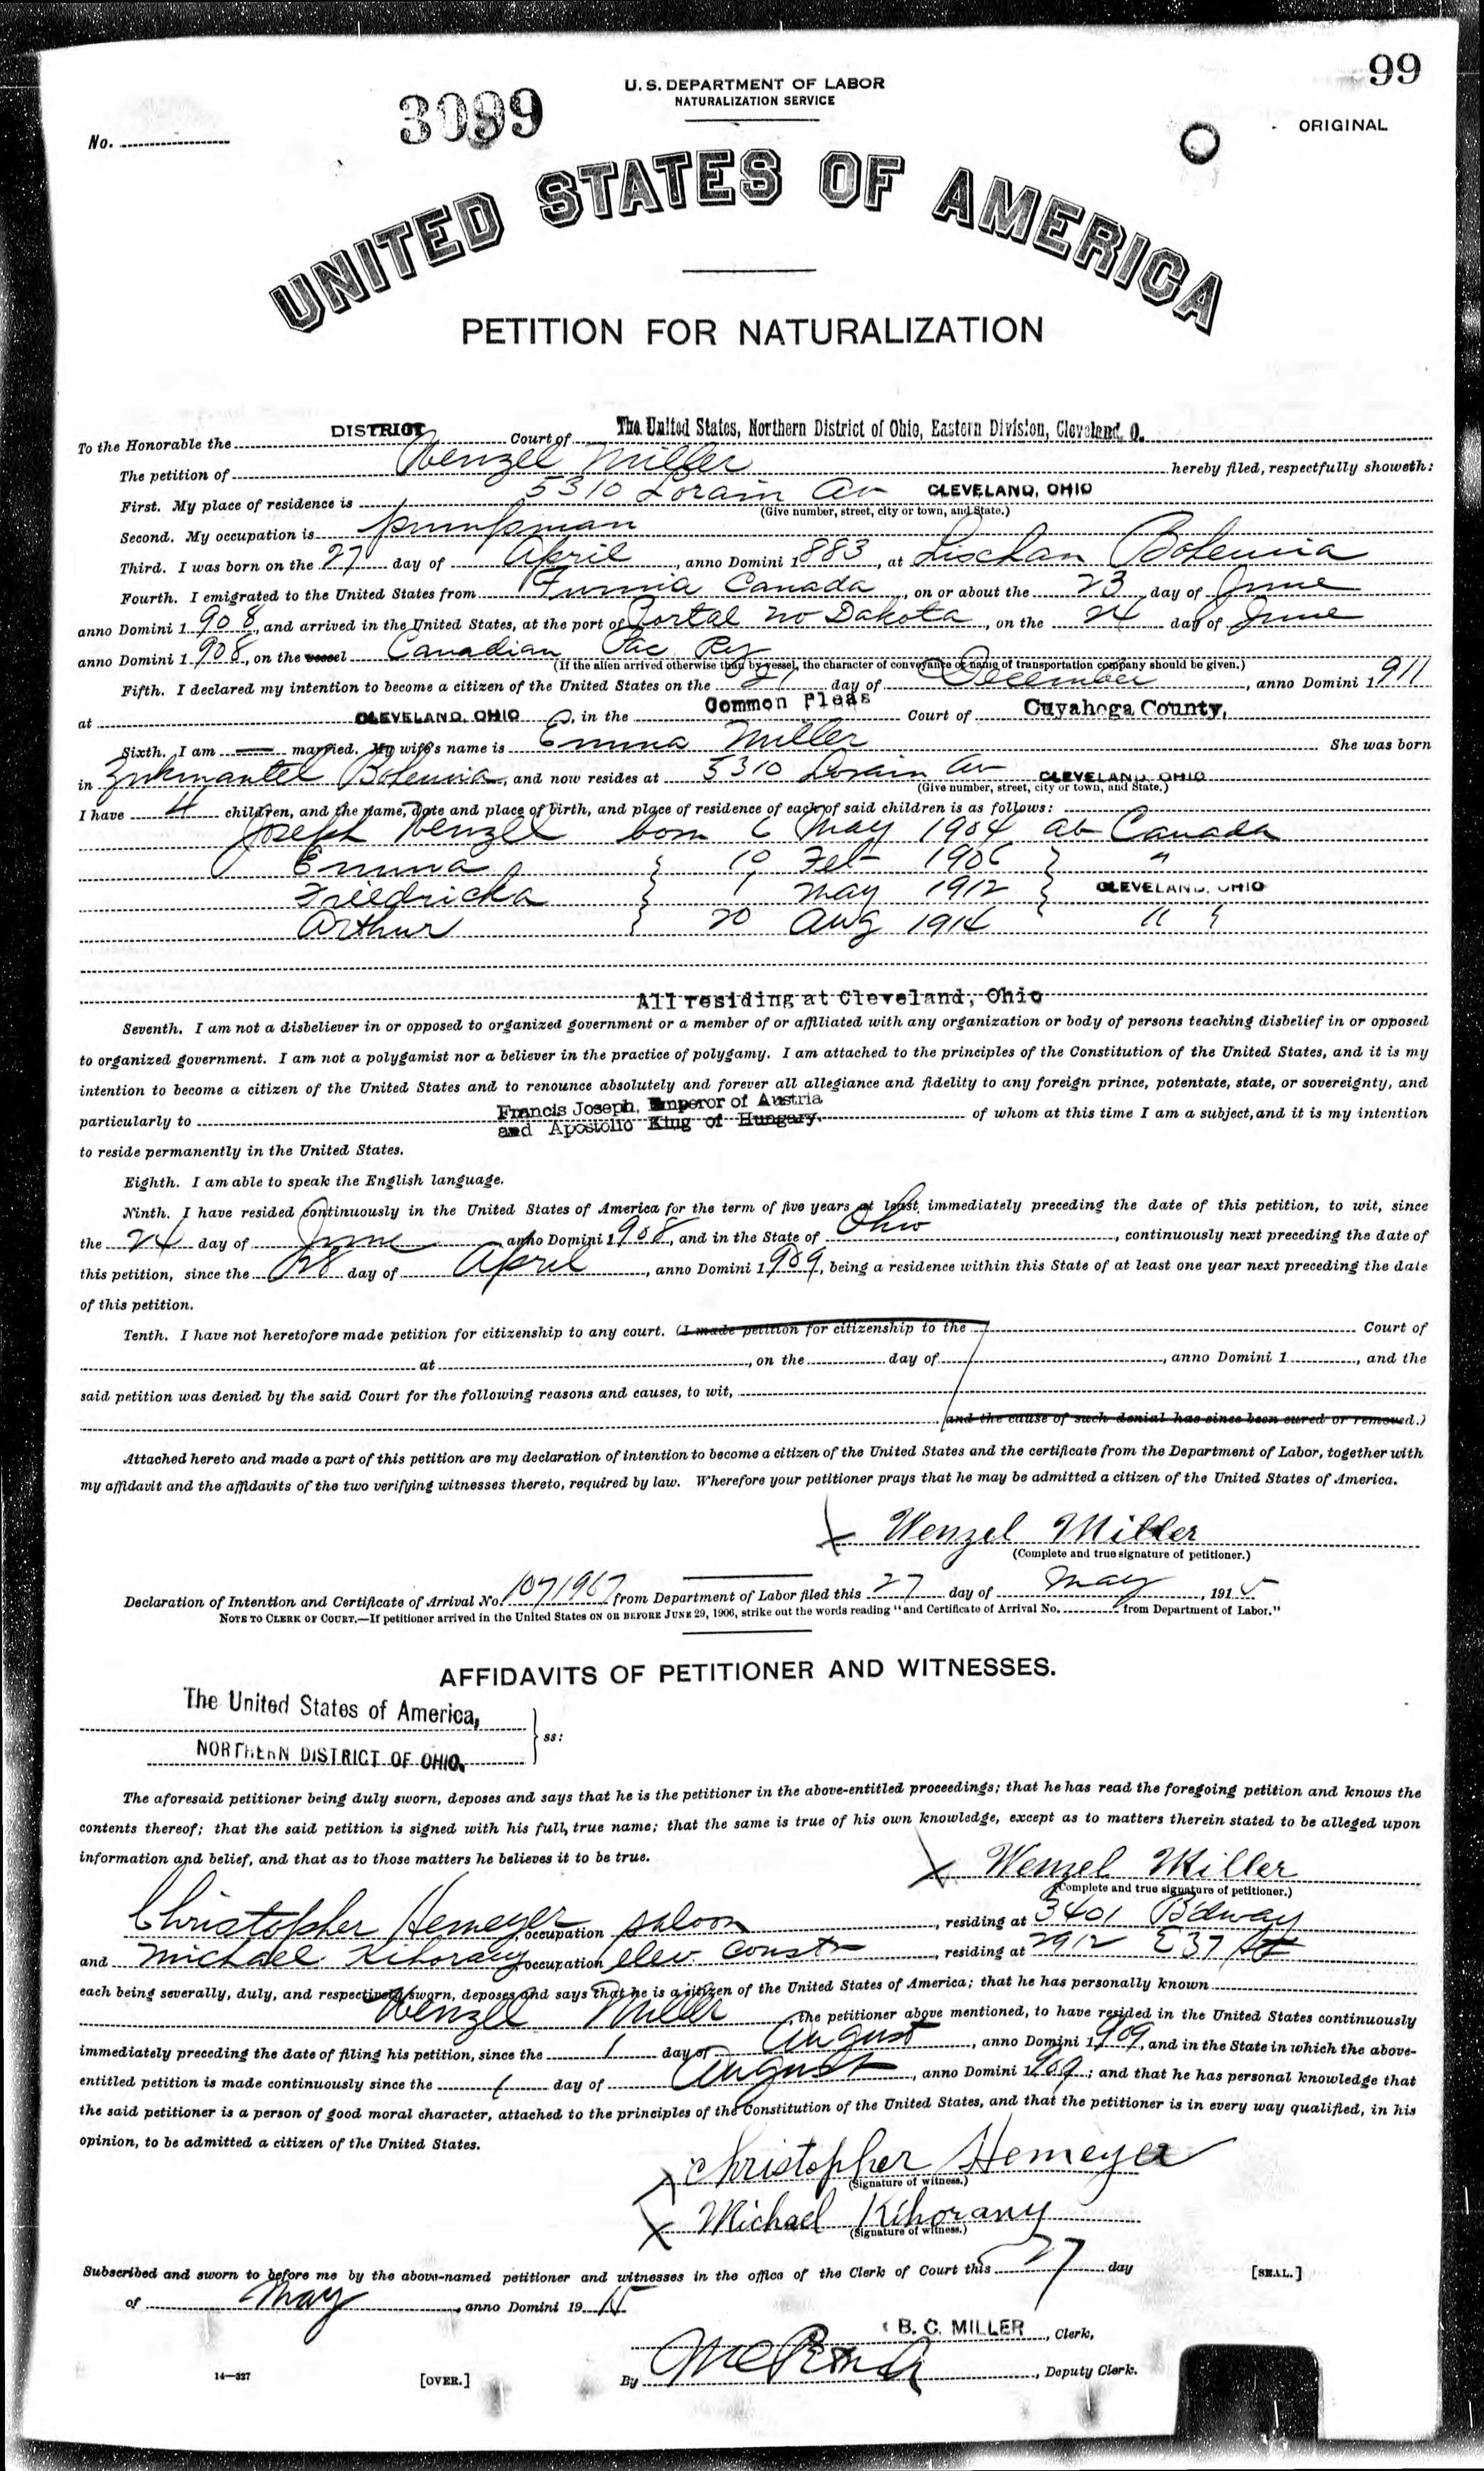 99
U. S. DEPARTMENT OF LABOR
NATURALIZATION SERVICE
No. 3099
ORIGINAL
UNITED STATES OF AMERICA
PETITION FOR NATURALIZATION
To the Honorable the DISTRICT Court of The United States, Northern District of Ohio, Eastern Division, Cleveland, O.
The petition of Wenzel Miller hereby filed, respectfully showeth:
First. My place of residence is 5310 Lorain Av CLEVELAND, OHIO
(Give number, street, city or town, and State.)
Second. My occupation is pumpman
Third. I was born on the 27 day of April, anno Domini 1883, at Lischan Bohemia
Fourth. I emigrated to the United States from Canada, on or about the 23 day of June
anno Domini 1908, and arrived in the United States, at the port of Portal No Dakota, on the 24 day of June
anno Domini 1908, on the vessel Canadian Pac Ry
(If the alien arrived otherwise than by vessel, the character of conveyance or name of transportation company should be given.)
Fifth. I declared my intention to become a citizen of the United States on the day of December, anno Domini 1911
at CLEVELAND, OHIO O, in the Common Pleas Court of Cuyahoga County,
Sixth. I am married. My wife's name is Emma Miller She was born
in Zukmantel Bohemia, and now resides at 5310 Lorain Av CLEVELAND, OHIO
(Give number, street, city or town, and State.)
I have 4 children, and the name, date and place of birth, and place of residence of each of said children is as follows:
Joseph Wenzel born 6 May 1904 at Canada
Emma } 10 Feb 1906 } "
Friedricka } 1 May 1912 } CLEVELAND, OHIO
Arthur } 20 Aug 1914 " "
All residing at Cleveland, Ohio
Seventh. I am not a disbeliever in or opposed to organized government or a member of or affiliated with any organization or body of persons teaching disbelief in or opposed
to organized government. I am not a polygamist nor a believer in the practice of polygamy. I am attached to the principles of the Constitution of the United States, and it is my
intention to become a citizen of the United States and to renounce absolutely and forever all allegiance and fidelity to any foreign prince, potentate, state, or sovereignty, and
particularly to Francis Joseph, Emperor of Austria
and Apostolic King of Hungary. of whom at this time I am a subject, and it is my intention
to reside permanently in the United States.
Eighth. I am able to speak the English language.
Ninth. I have resided continuously in the United States of America for the term of five years at least, immediately preceding the date of this petition, to wit, since
the 24 day of June, anno Domini 1908, and in the State of Ohio, continuously next preceding the date of
this petition, since the 28 day of April, anno Domini 1909, being a residence within this State of at least one year next preceding the date
of this petition.
Tenth. I have not heretofore made petition for citizenship to any court. (I made petition for citizenship to the Court of
at , on the day of , anno Domini 1 , and the
said petition was denied by the said Court for the following reasons and causes, to wit,
and the cause of such denial has since been cured or removed.)
Attached hereto and made a part of this petition are my declaration of intention to become a citizen of the United States and the certificate from the Department of Labor, together with
my affidavit and the affidavits of the two verifying witnesses thereto, required by law. Wherefore your petitioner prays that he may be admitted a citizen of the United States of America.
X Wenzel Miller
(Complete and true signature of petitioner.)
Declaration of Intention and Certificate of Arrival No. 1071967 from Department of Labor filed this 27 day of May, 1915
NOTE TO CLERK OF COURT.—If petitioner arrived in the United States ON OR BEFORE JUNE 29, 1906, strike out the words reading "and Certificate of Arrival No. from Department of Labor."
AFFIDAVITS OF PETITIONER AND WITNESSES.
The United States of America,
NORTHERN DISTRICT OF OHIO, } ss:
The aforesaid petitioner being duly sworn, deposes and says that he is the petitioner in the above-entitled proceedings; that he has read the foregoing petition and knows the
contents thereof; that the said petition is signed with his full, true name; that the same is true of his own knowledge, except as to matters therein stated to be alleged upon
information and belief, and that as to those matters he believes it to be true.
X Wenzel Miller
(Complete and true signature of petitioner.)
Christopher Hemeyer occupation saloon, residing at 3401 Bdway
and Michael Kihorany occupation elev. constr, residing at 2912 E 37 St
each being severally, duly, and respectively sworn, deposes and says that he is a citizen of the United States of America; that he has personally known
Wenzel Miller, the petitioner above mentioned, to have resided in the United States continuously
immediately preceding the date of filing his petition, since the 1 day of August, anno Domini 1909, and in the State in which the above-
entitled petition is made continuously since the 1 day of August, anno Domini 1909; and that he has personal knowledge that
the said petitioner is a person of good moral character, attached to the principles of the Constitution of the United States, and that the petitioner is in every way qualified, in his
opinion, to be admitted a citizen of the United States.
X Christopher Hemeyer
(Signature of witness.)
X Michael Kihorany
(Signature of witness.)
Subscribed and sworn to before me by the above-named petitioner and witnesses in the office of the Clerk of Court this 27 day [SEAL.]
of May, anno Domini 1915
B. C. MILLER, Clerk,
By , Deputy Clerk.
14—327
[OVER.]